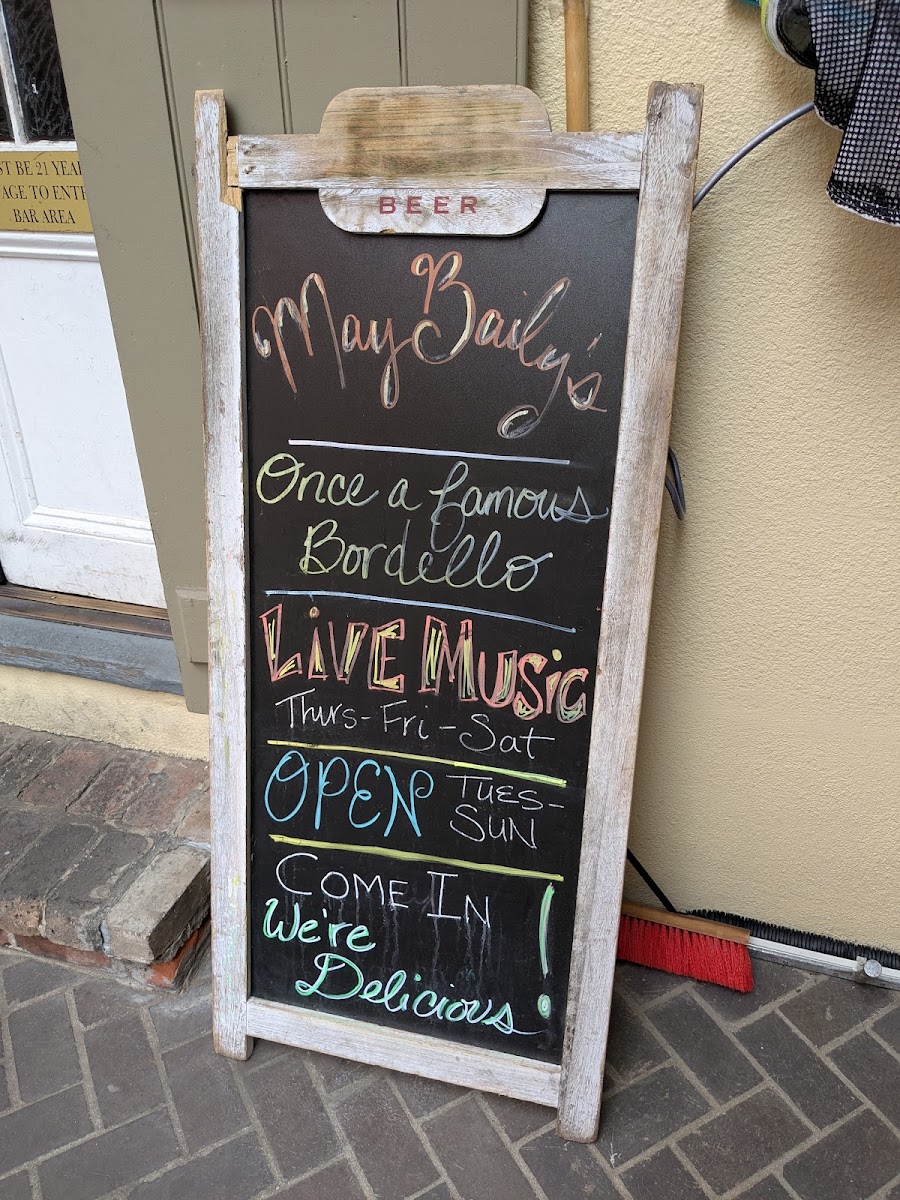 BE 21
AGE TO
BAR AREA
BEER
May Baily's
Once a famous
Bordello
LIVE MUSIC
Thurs-Fri-Sat
OPEN TUES-
SUN
COME IN
We're
Delicious!